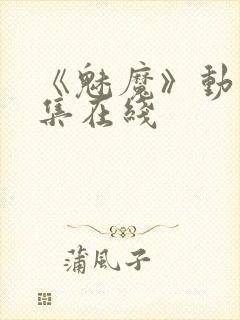 《魅魔》動
集在綫
蒲風子